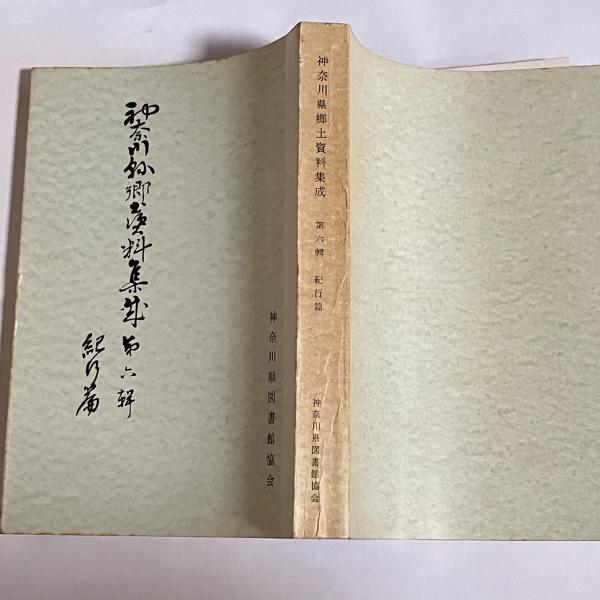 神奈川県郷土資料集成 第六輯
紀行篇
神奈川県図書館協会
神奈川県郷土資料集成 第六輯 紀行篇
神奈川県図書館協会